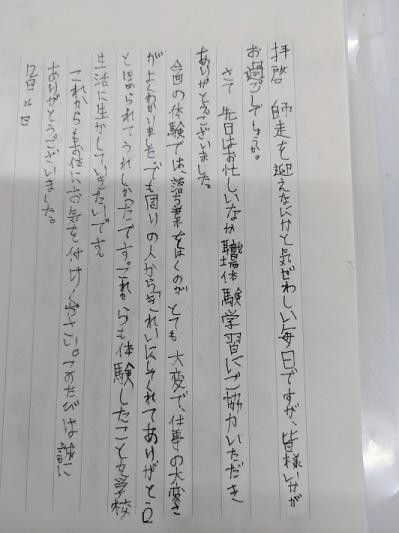 拝啓 師走を迎えなにかと気ぜわしい毎日ですが、皆様いかが
お過ごしでしょうか。
さて先日はお忙しいなか職場体験学習にご協力いただき
ありがとうございました。
今回の体験では、落ち葉をはくのがとても大変で、仕事の大変さ
がよくわかりました。でも周りの人から「きれいにしてくれてありがとう」
とほめられてうれしかったです。これからも体験したことを学校
生活に生かしていきたいです。
これからもお体にお気を付けください。このたびは誠に
ありがとうございました。
12月16日